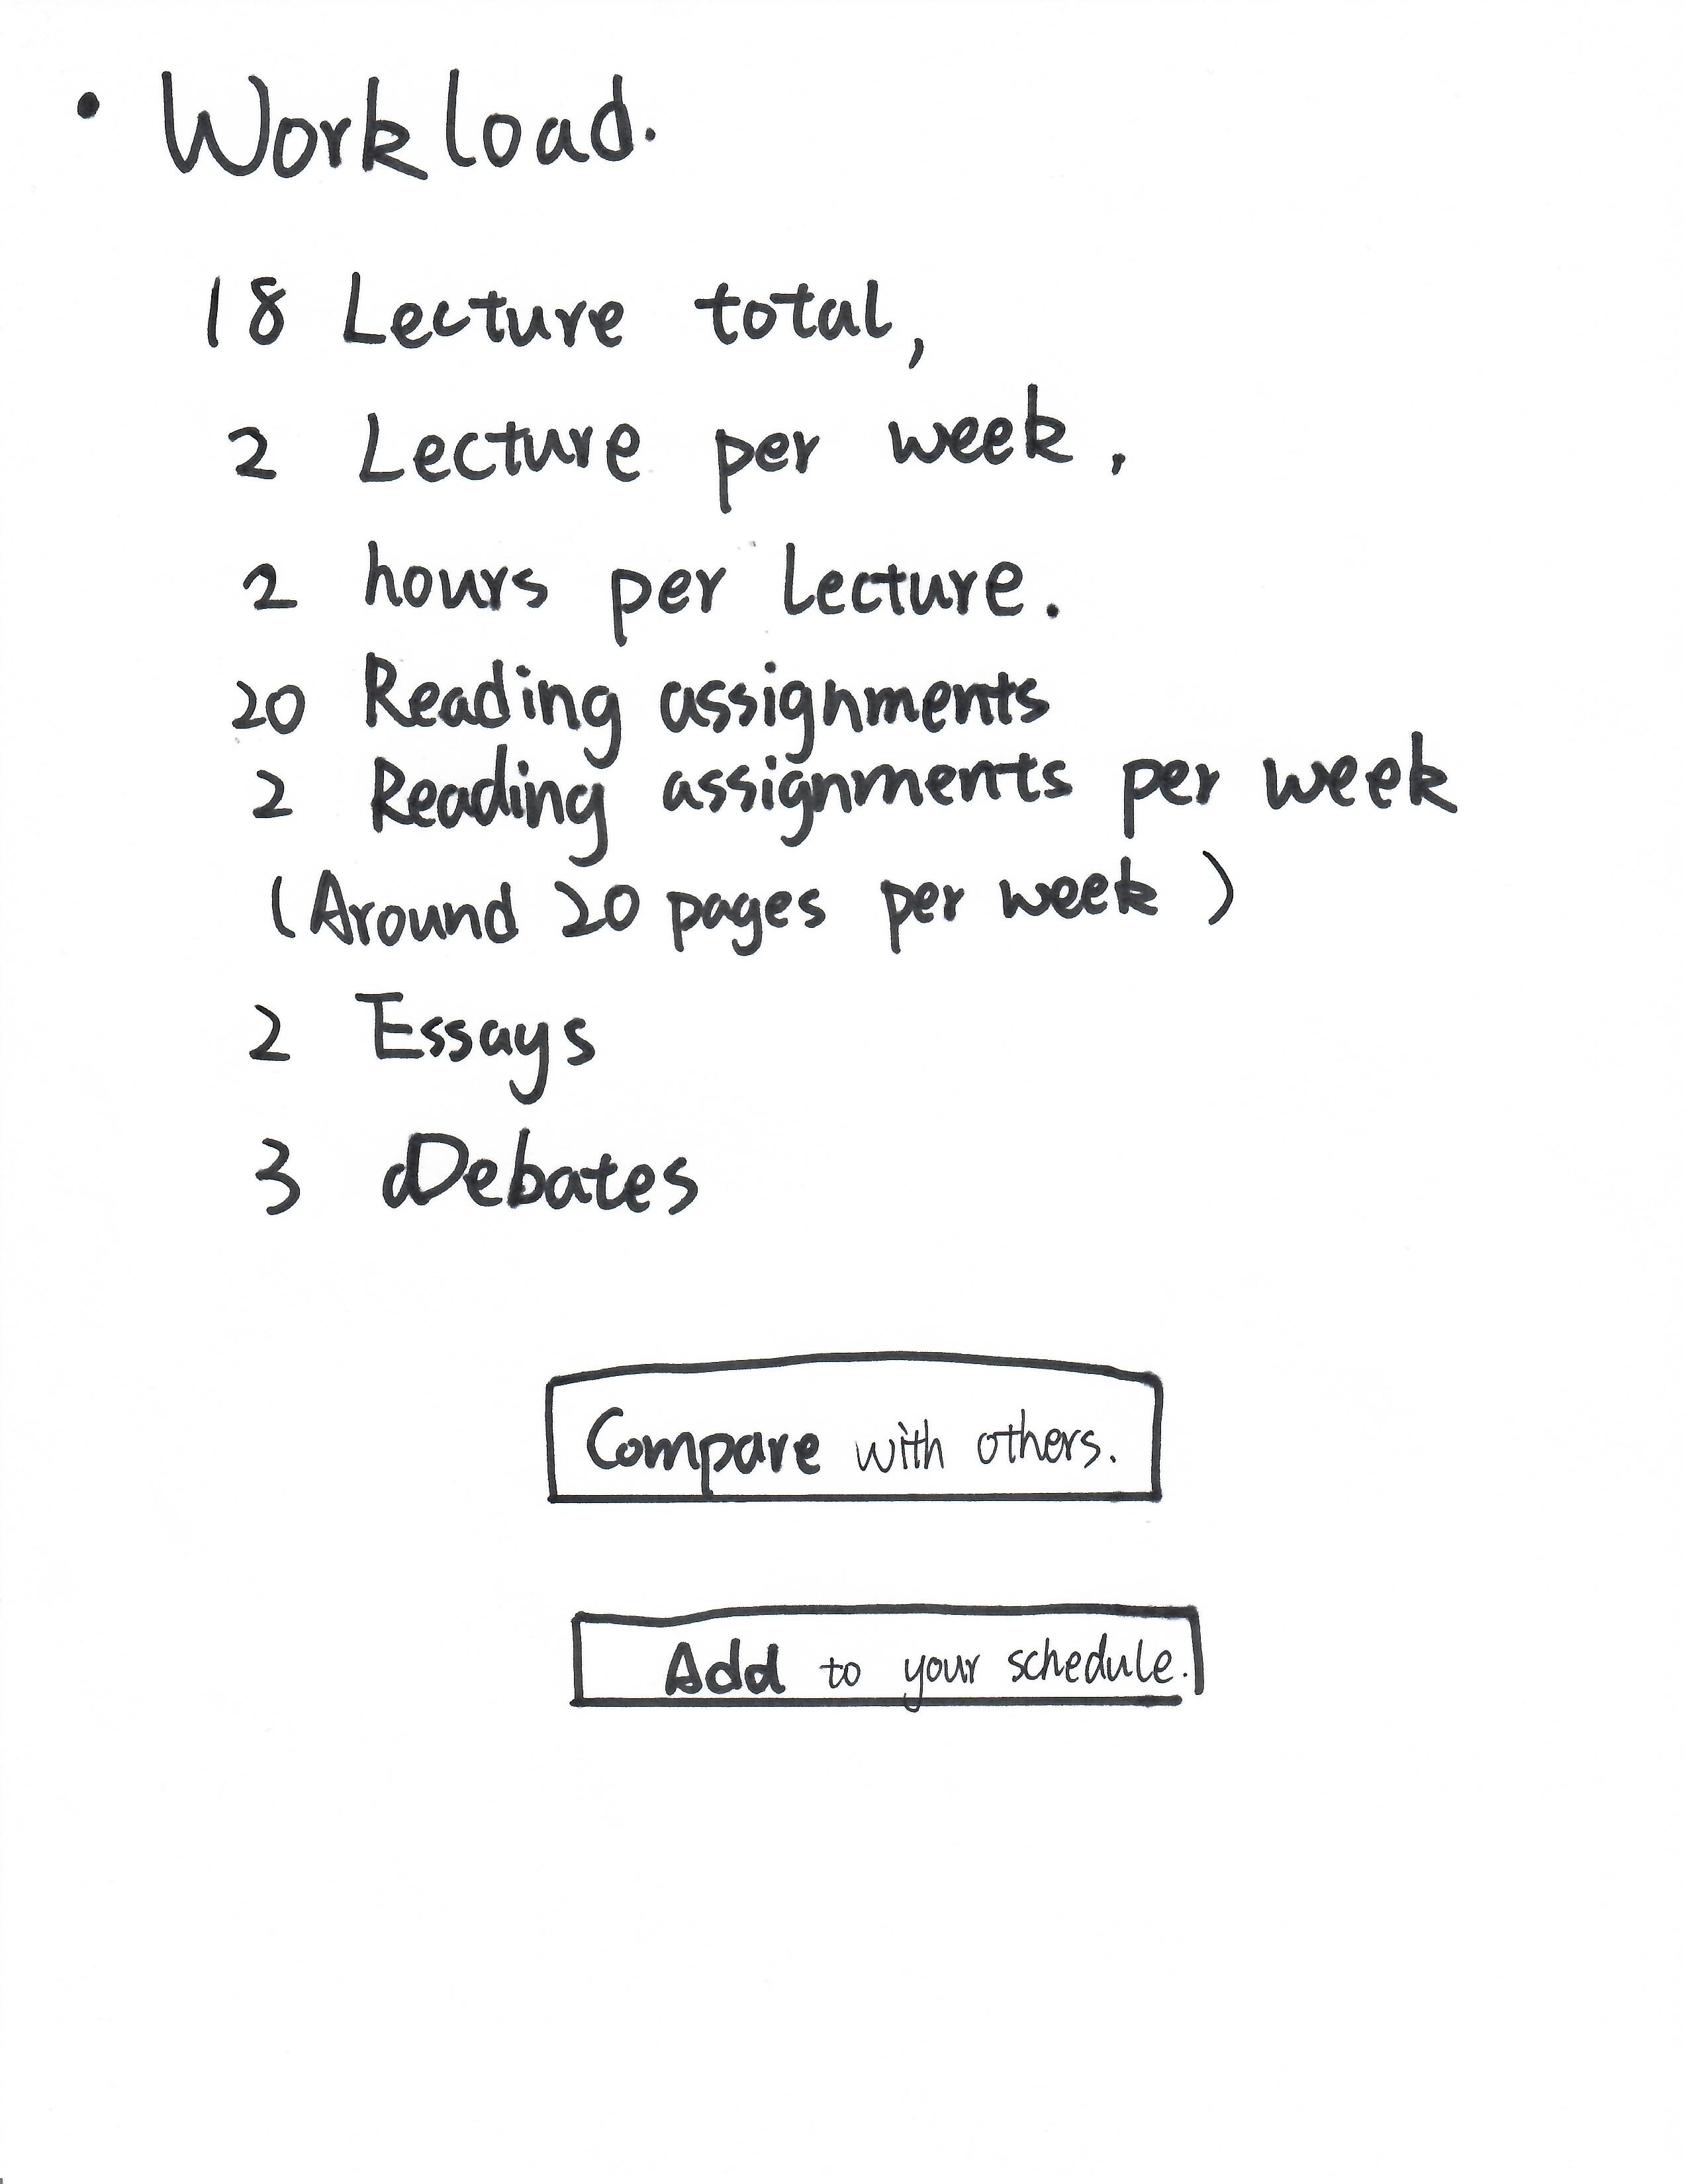 • Workload.
18 Lecture total,
2 Lecture per week,
2 hours per Lecture.
20 Reading assignments
2 Reading assignments per week
(Around 20 pages per week)
2 Essays
3 Debates
Compare with others.
Add to your schedule.